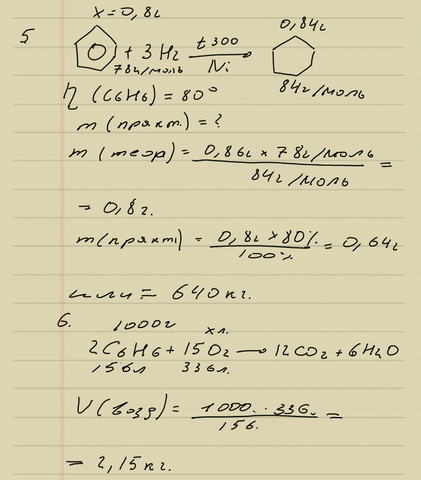 x = 0,8г
0,84г
5
+ 3 H2 t 300 Ni
78г/моль
84г/моль
η (C6H6) = 80°
m (практ.) = ?
m (теор) = 0,86г × 78г/моль / 84г/моль =
= 0,8г.
m(практ) = 0,8г × 80% / 100% = 0,64г
или = 640кг.
6.
1000г хл.
2C6H6 + 15O2 → 12CO2 + 6H2O
156л 336л.
V(возд) = 1000. · 336. / 156. =
= 2,15кг.